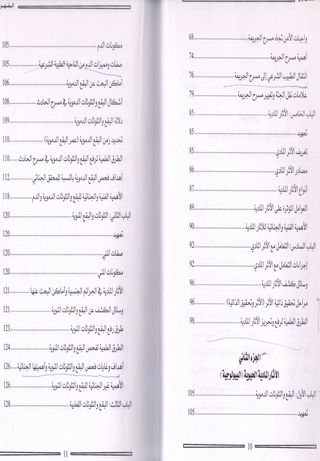 واجبات الأمن تجاه مسرح الجريمة 68
أهمية مسرح الجريمة 74
انتقال الطبيب الشرعي إلى مسرح الجريمة 76
علامات نقل الجثة وتغيير مسرح الجريمة 79
الباب الخامس: الآثار المادية 85
تمهيد 85
تعريف الأثر المادي 85
مصادر الأثر المادي 86
أنواع الآثار المادية 87
العوامل المؤثرة على الآثار المادية 89
الأهمية الفنية والجنائية للآثار المادية 90
الباب السادس: التعامل مع الآثار المادية 92
إجراءات التعامل مع الأثر المادي 92
وسائل كشف الآثار المادية 96
مراحل تحقيق ذاتية الأثر (الأثر وتحقيق الذاتية) 96
الطرق العلمية لرفع وتحريز الآثار المادية 98
الجزء الثاني
الآثار المادية الحيوية (البيولوجية)
الباب الأول: البقع والتلوثات الدموية 105
تمهيد 105
10
مكونات الدم 105
صفات ومميزات الدم من الناحية الطبية الشرعية 105
أماكن البحث عن البقع الدموية 106
أشكال البقع والتلوثات الدموية في مسرح الحادث 108
دلالة البقع والتلوثات الدموية 109
تحديد زمن البقع الدموية (عمر البقع الدموية) 110
الطرق العلمية لرفع البقع والتلوثات الدموية في مسرح الحادث 110
أهداف فحص البقع الدموية بالنسبة للمحقق الجنائي 112
الأهمية الفنية والجنائية للبقع والتلوثات الدموية والدم 118
الباب الثاني: التلوثات والبقع المنوية 120
تمهيد 120
صفات المني 120
مكونات المني 120
الآثار المادية في الجرائم الجنسية وأماكن البحث عنها 121
وسائل الكشف عن البقع والتلوثات المنوية 121
طرق رفع البقع والتلوثات المنوية 123
الطرق العلمية لفحص البقع والتلوثات المنوية 124
أهداف وغايات فحص البقع والتلوثات المنوية وأهميتها الجنائية 126
الأهمية غير الجنائية للبقع والتلوثات المنوية 126
الباب الثالث: البقع والتلوثات اللعابية 128
11